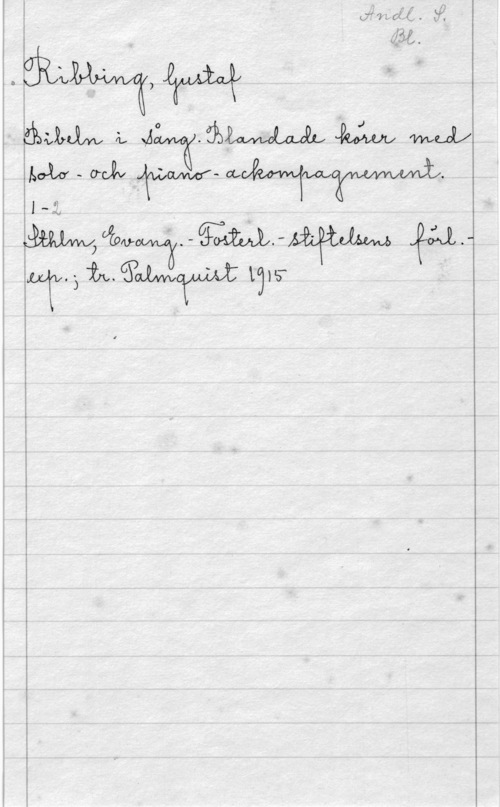 Andl. S.
Bl.
Ribbing, Gustaf
Bibeln i sång. Blandade körer med
solo- och piano-ackompagnement.
1-2
Sthlm, Evang.-Fosterl.-stiftelsens förl.-
exp.; tr. Palmquist 1915